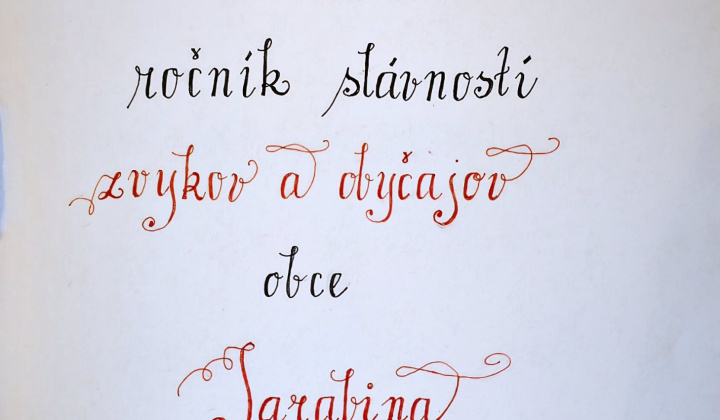 ročník slávností
zvykov a obyčajov
obce
Jarabina